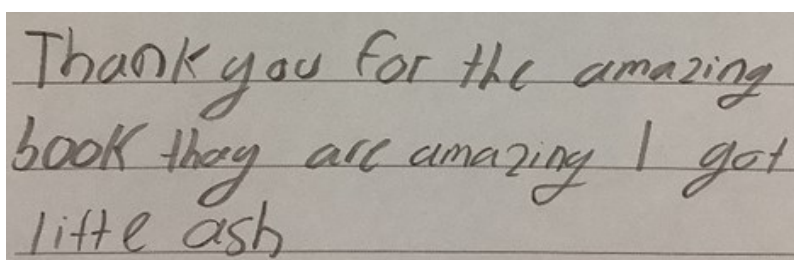 Thank you for the amazing
book thay are amazing I got
little ash